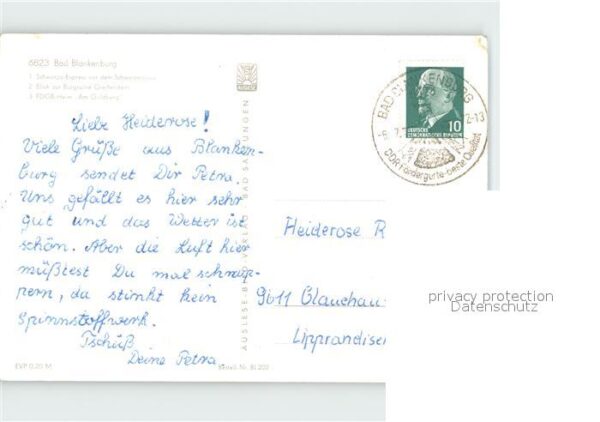 6823 Bad Blankenburg
1. Schwarza-Express vor dem
2. Blick zur Burgruine Greifenstein
3. FDGB-Heim „Am Goldberg“
Liebe Heiderose!
Viele Grüße aus Blanken-
burg sendet Dir Petra.
Uns gefällt es hier sehr
gut und das Wetter ist
schön. Aber die Luft hier
müßtest Du mal schnup-
pern, da stinkt kein
Spinnstoffwerk.
Tschüß
Deine Petra.
EVP 0,20 M
Bestell-Nr. BL 202
AUSLESE-BILD-VERLAG BAD SALZUNGEN
DEUTSCHE
DEMOKRATISCHE REPUBLIK
10
BAD BLANKENBURG
-6.7. 72-13
DDR Fördergurte-beste Qualität
Heiderose R
9611 Glauchau
Lipprandiser
privacy protection
Datenschutz